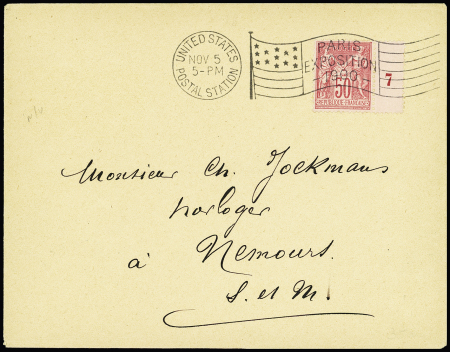 UNITED STATES
NOV 5
5-PM
POSTAL STATION
PARIS
EXPOSITION
1900
50
REPUBLIQUE FRANCAISE
7
Monsieur Ch. Jockmans
horloger
à Nemours.
S. et M.